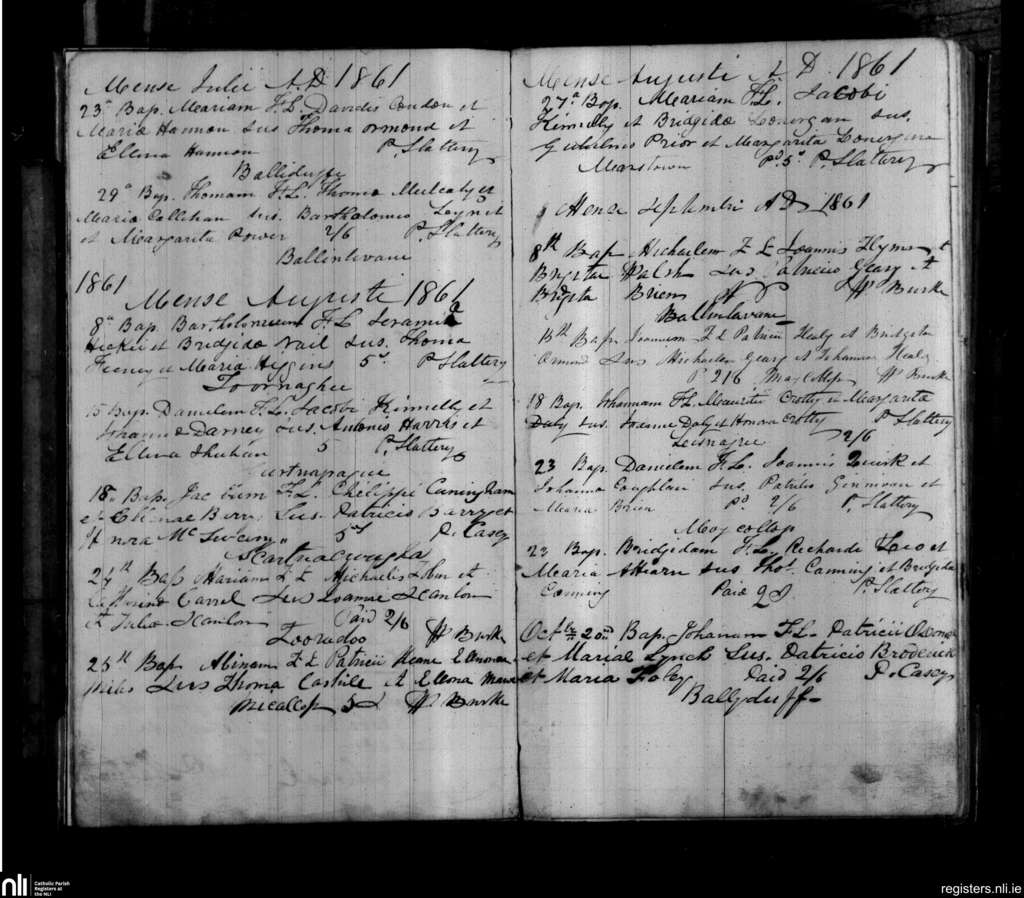 Mense Julii A.D 1861
23a Bap. Mariam F.L. Davidis Condon et
Maria Hannon Sus Thoma ormond et
Ellena Hannon P. Slattery
Balliduff
29a Bap. Thomam F.L. Thoma Mulcahy et
Maria Callahan Sus. Bartholomeo
et Margarita Power 2/6 P. Slattery
Ballinlevane
1861
Mense Augusti 1861
8a Bap. Bartholomeum F.L. Jeramie
Hickie et Bridgida Nail Sus. Thoma
Feeney et Maria Higgins 5s P Slattery
Toornaghee
15 Bap. Danielem F.L. Jacobi Kinnelly et
Johanna Darney Sus. Antonio Harris et
Ellena Shuhan 5 P. Slattery
Curtnapague
18a Bap. Jacobum F.L. Philippi Cuningham
et Sus. Patricio Barry et
Mc 5s D. Casey
24th Bap Mariam F L Michaelis et
Catherina Carrol Sus Joanne Scanlon
et Julia Scanlon Paid 2/6
Tooradoo W Burke
25th Bap F L Patricii Keane
Miles Sus Thoma et Ellena
Mccallop W Burke
Mense Augusti A.D. 1861
27a Bap. Mariam F.L. Jacobi
Kinnelly et Bridgida Lonergan Sus.
Gulielmo Prior et Margarita Lonergan
Mearstown Pd. 5s. P. Slattery
Mense Septembri AD 1861
8th Bap Michaelem F L Joannis Flyn et
Brigita Walsh Sus Patricio Geary et
Brigita Brien W Burke
Ballinlavane
15th Bap. Joannem F L Patricii Healy et Bridgita
Ormond Sus Michaelem Geary et Johanna Healy
P 2/6 Maycollop W Burke
18 Bap. Johannam F.L. Mauritii Crotty et Margarita
Daly Sus. Joanne Daly et Honora Crotty P Slattery
Leisnagree 2/6
23 Bap. Danielem F.L. Joannis Quirk et
Johanna Coughlan Sus. Patritio et
Maria Brien Pd 2/6 P. Slattery
Moycollop
23 Bap. Bridgidam F.L. Richardi et
Maria Ahearn Sus Thos. Canning et Bridgida
Canning Paid P. Slattery
Octbr 20th Bap. Johanam F.L. Patricii
et Mariae Lynch Sus. Patricio Broderick
et Maria Foley Paid 2/6 D. Casey
Ballyduff
nli Catholic Parish
Registers at
the NLI
registers.nli.ie